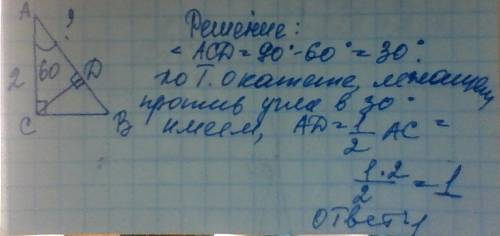 A
?
2
60
D
C
B
Решение:
< ACD = 90° - 60° = 30°.
по Т. о катете, лежащем
против угла в 30°
имеем, AD = 1/2 AC =
1·2/2 = 1
ответ 1